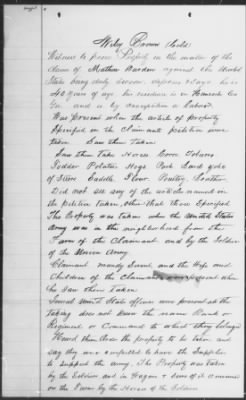 Wiley Bacon (Cold)
Witness to prove Property in the matter of the
claim of Matthew Barden against the United
States being duly sworn deposes & says he is
40 years of age his residence is in Hancock Co
Ga. and is by occupation a laborer.
Was present when the article of property
Specified on the Claimants petition were
taken Saw them Taken
Saw them take Horses Corn Tobacco
Fodder Potatoes Hogs Pork Lard
of Saddle Flour Poultry Leather
Did not see any of the articles named in
the petition taken, other than those Specified
The Property was taken when the United States
Army was in the neighborhood from the
Farm of the Claimant and by the Soldiers
of the Union Army
Claimant and the Wife and
Children of the Claimant present when
he Saw them Taken
United State officers were present at the
taking does not know the name Rank or
Regiment or Command to which they belonged
Heard them Order the property to be taken and
say they were compelled to have the Supplies
to support the army. The Property was taken
by the Soldiers and in Wagons & some of it removed
on the by the Horses of the Soldiers